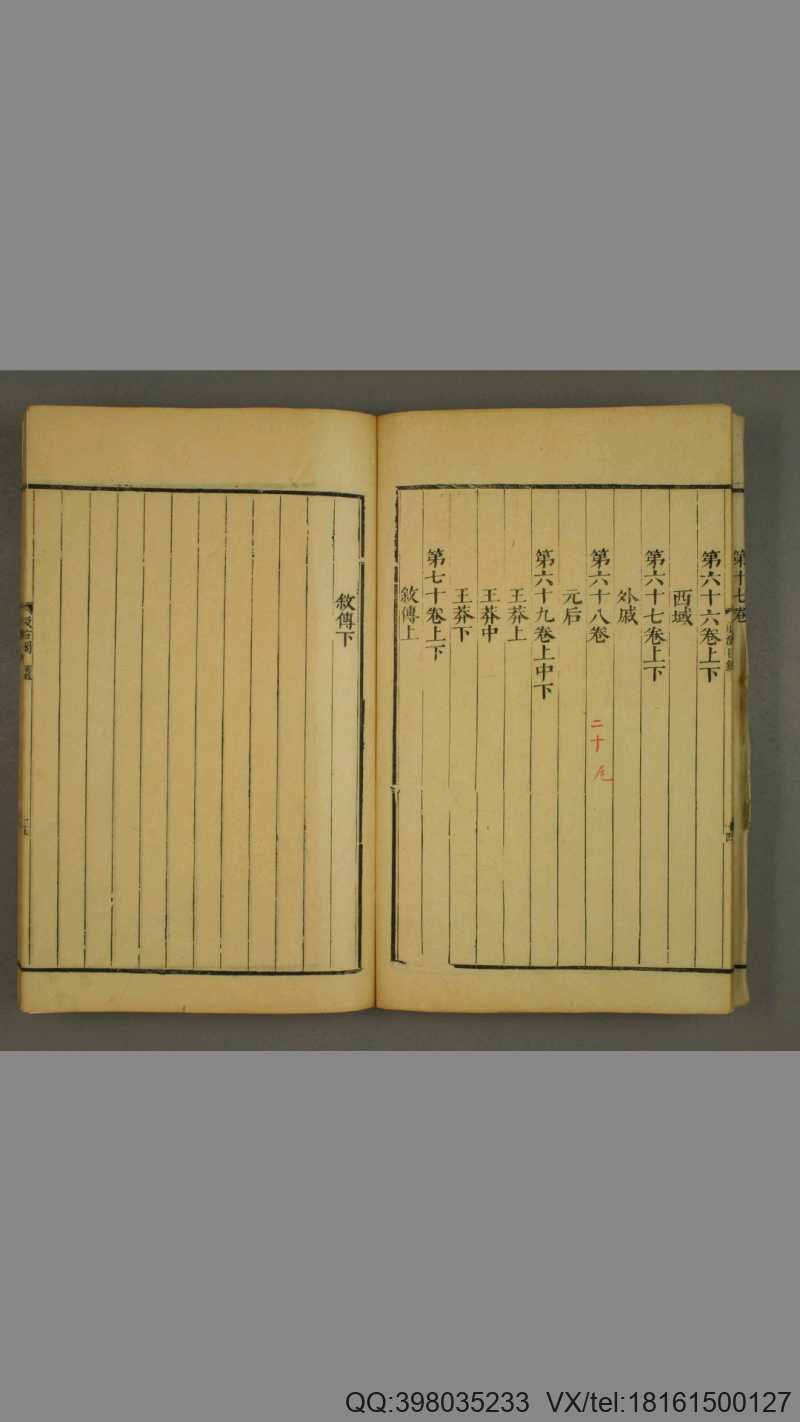 第十七卷
第六十六卷上下
西域
第六十七卷上下
外戚
第六十八卷
元后
第六十九卷上中下
王莽上
王莽中
王莽下
第七十卷上下
敘傳上
二十
敘傳下
QQ:398035233 VX/tel:18161500127